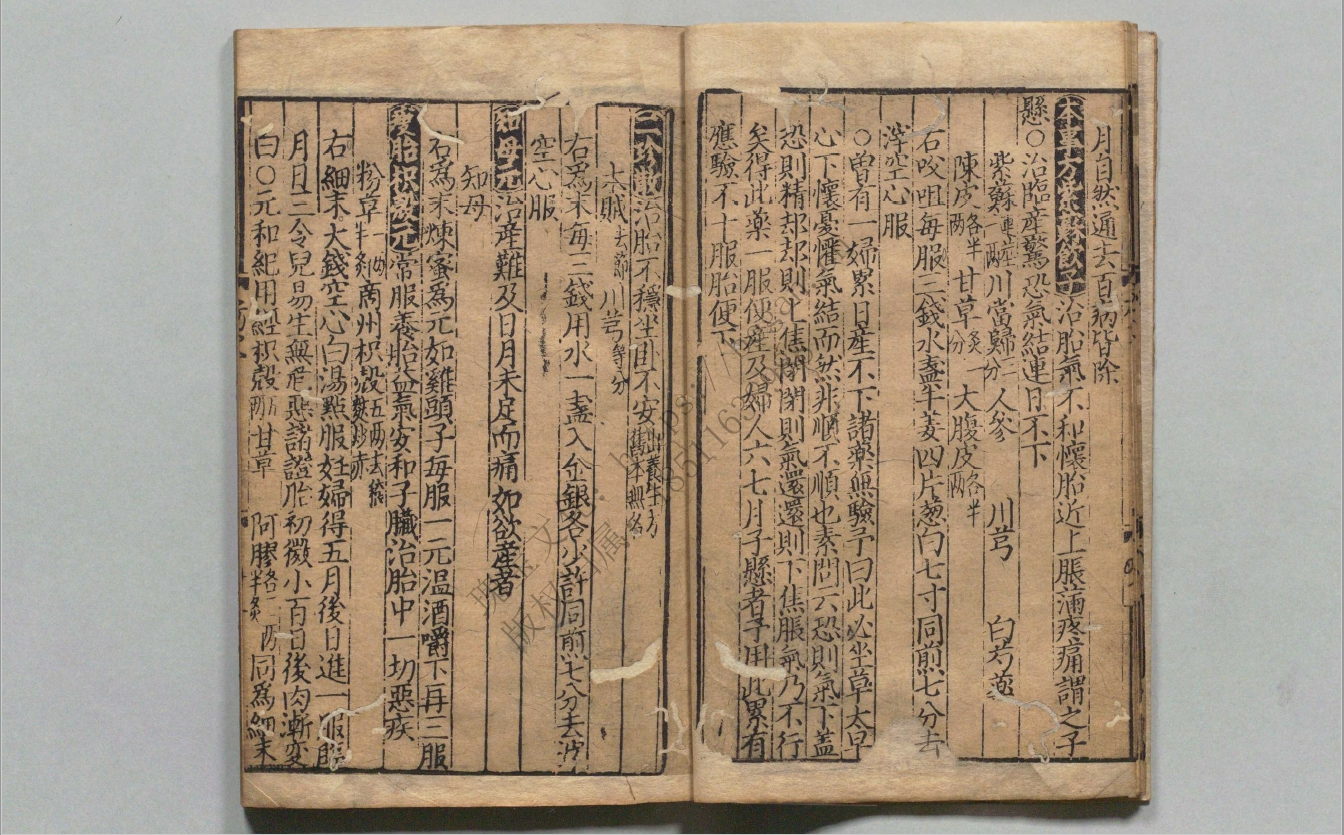 月自然通去百病皆除
本事方紫蘇飲子治胎氣不和懷胎近上脹滿疼痛謂之子
懸○治臨産驚恐氣結連日不下
紫蘇連莖一兩 川當歸三分 人參 川芎 白芍藥
陳皮各半兩 甘草炙一分 大腹皮各半兩
右㕮咀每服三錢水盞半姜四片葱白七寸同煎七分去
滓空心服
○曽有一婦累日産不下諸藥無驗予曰此必坐草太早
心下懷憂懼氣結而然非順不順也素問云恐則氣下蓋
恐則精却却則上焦閉閉則氣還還則下焦脹氣乃不行
矣得此藥一服便産及婦人六七月子懸者予用此累有
應驗不十服胎便下
二珍散治胎不穩坐卧不安出養生方舊本無名
木賊去節 川芎等分
右爲末每三錢用水一盞入金銀各少許同煎七分去滓
空心服
知母元治産難及日月未足而痛如欲産者
知母
右爲末煉蜜爲元如雞頭子每服一元温酒嚼下再三服
瘦胎枳殼元常服養胎益氣安和子臟治胎中一切惡疾
粉草一兩半炙 商州枳殼五兩去穰麩炒赤
右細末大錢空心白湯點服妊婦得五月後日進一服臨
月日三令兒易生無他惡諸證胎初微小百日後肉漸変
白○元和紀用經枳殼 甘草 阿膠 同爲細末